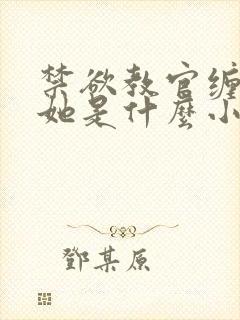 禁欲教官缠
她是什麼小
鄧某原